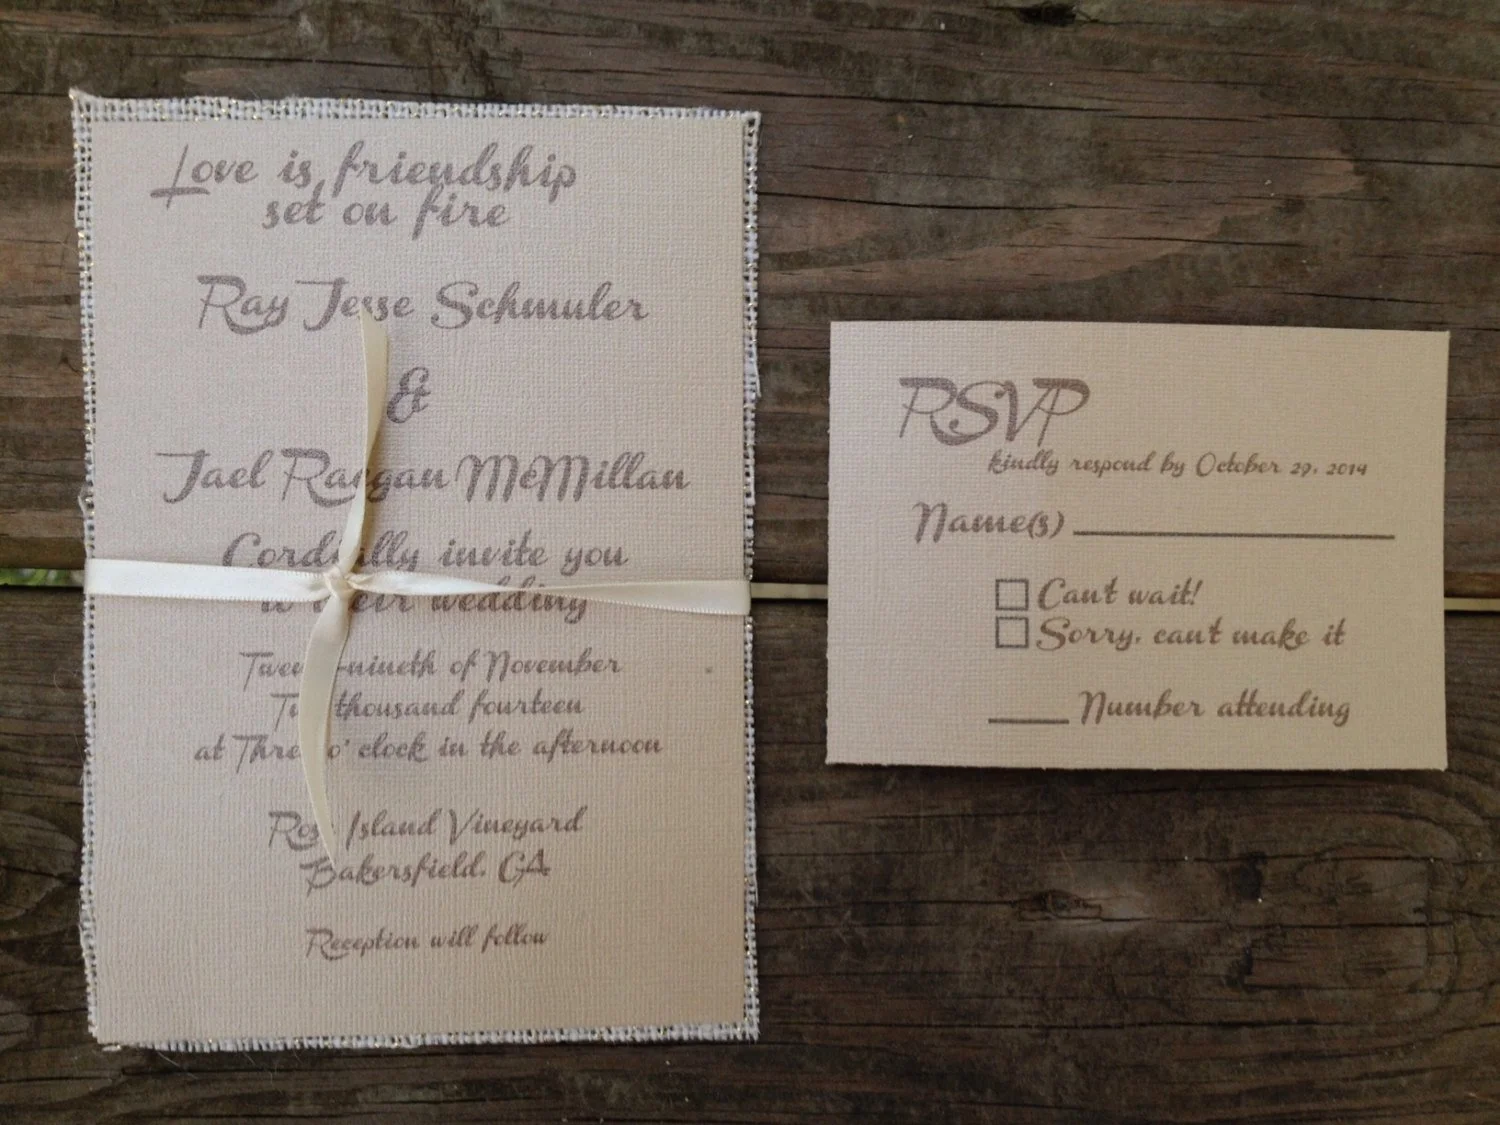 Love is friendship
set on fire
Ray Jesse Schmuler
&
Jael Raegan McMillan
Cordially invite you
to their wedding
Twenty-nineth of November
Two thousand fourteen
at Three o' clock in the afternoon
Rose Island Vineyard
Bakersfield, CA
Reception will follow
RSVP
kindly respond by October 29, 2014
Name(s)
Can't wait!
Sorry, can't make it
Number attending